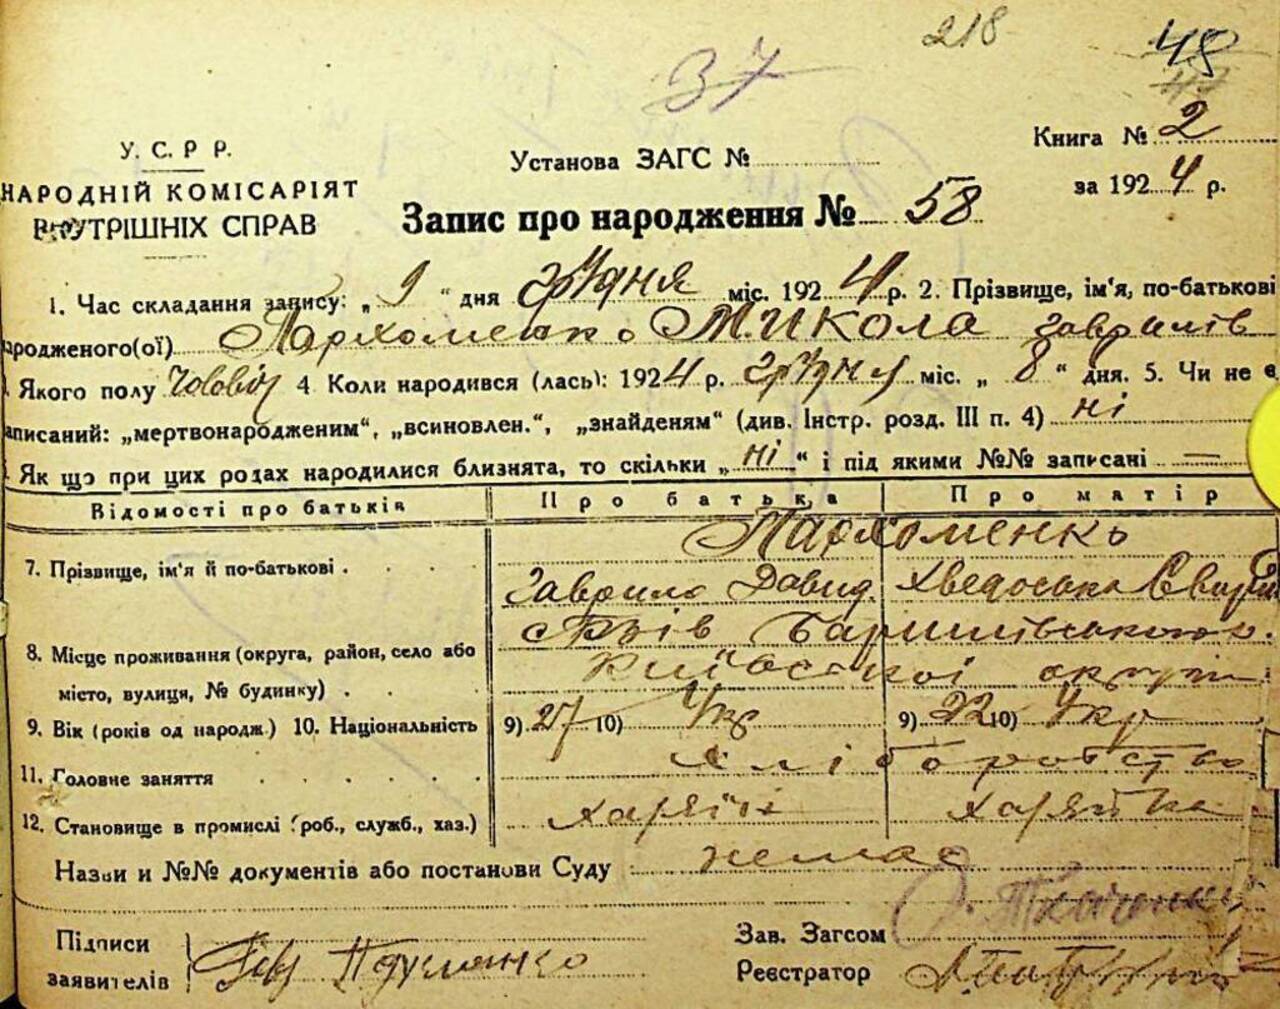 218
48
37
У. С. Р Р.
НАРОДНІЙ КОМІСАРІЯТ
ВНУТРІШНІХ СПРАВ
Установа ЗАГС №
Книга № 2
за 1924 р.
Запис про народження № 58
1. Час складання запису: „ 9 “ дня грудня міс. 1924 р. 2. Прізвище, ім'я, по-батькові
ародженого(ої) Пархоменко Микола Гаврилів
Якого полу чоловіч 4 Коли народився (лась): 1924 р. грудня міс. „ 8 “ дня. 5. Чи не є
аписаний: „мертвонародженим“, „всиновлен.“, „знайденям“ (див. Інстр. розд. III п. 4) ні
Як що при цих родах народилися близнята, то скільки „ ні “ і під якими №№ записані —
Відомості про батьків Про батька Про матір
Пархоменко
7. Прізвище, ім'я й по-батькові Гаврило Давид. Хведоська
8. Місце проживання (округа, район, село або Баришівського
місто, вулиця, № будинку) Київської округи
9. Вік (років од народж.) 10. Національність 9) 27 10) Укр 9) 22 10) Укр
11. Головне заняття Хліборобство
12. Становище в промислі (роб., служб., хаз.) хазяїн хазяйка
Назви и №№ документів або постанови Суду немає
Підписи
заявителів
Зав. Загсом Ткаченко
Реєстратор